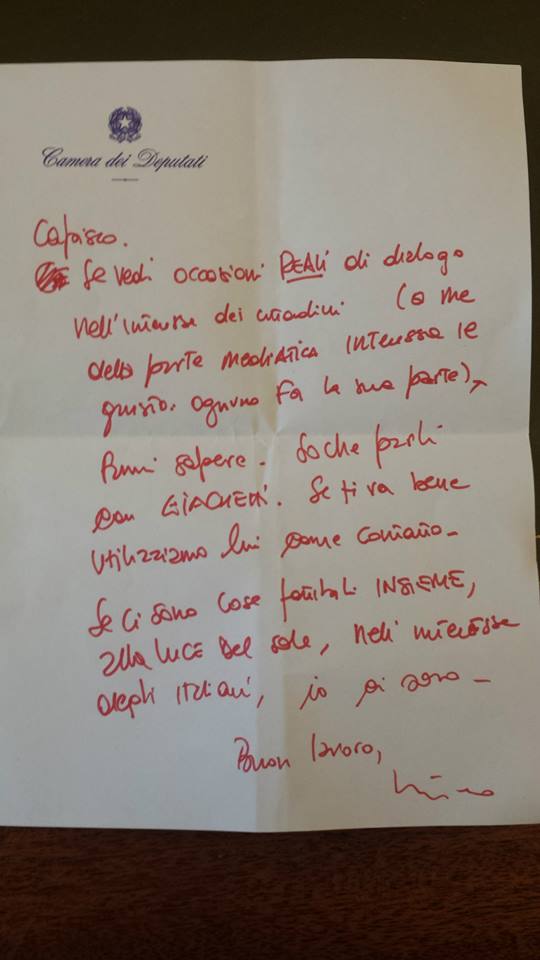 Camera dei Deputati
Capisco.
Se vedi occasioni REALI di dialogo
nell'interesse dei cittadini (a me
della parte mediatica interessa il
giusto. Ognuno fa la sua parte),
fammi sapere. So che parli
con GIACHETTI. Se ti va bene
utilizziamo lui come contatto.
Se ci sono cose fattibili INSIEME,
alla luce del sole, nell'interesse
degli italiani, io ci sono -
Buon lavoro,